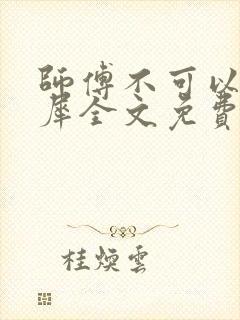 師傅不可以
犀全文免費
桂煥雲